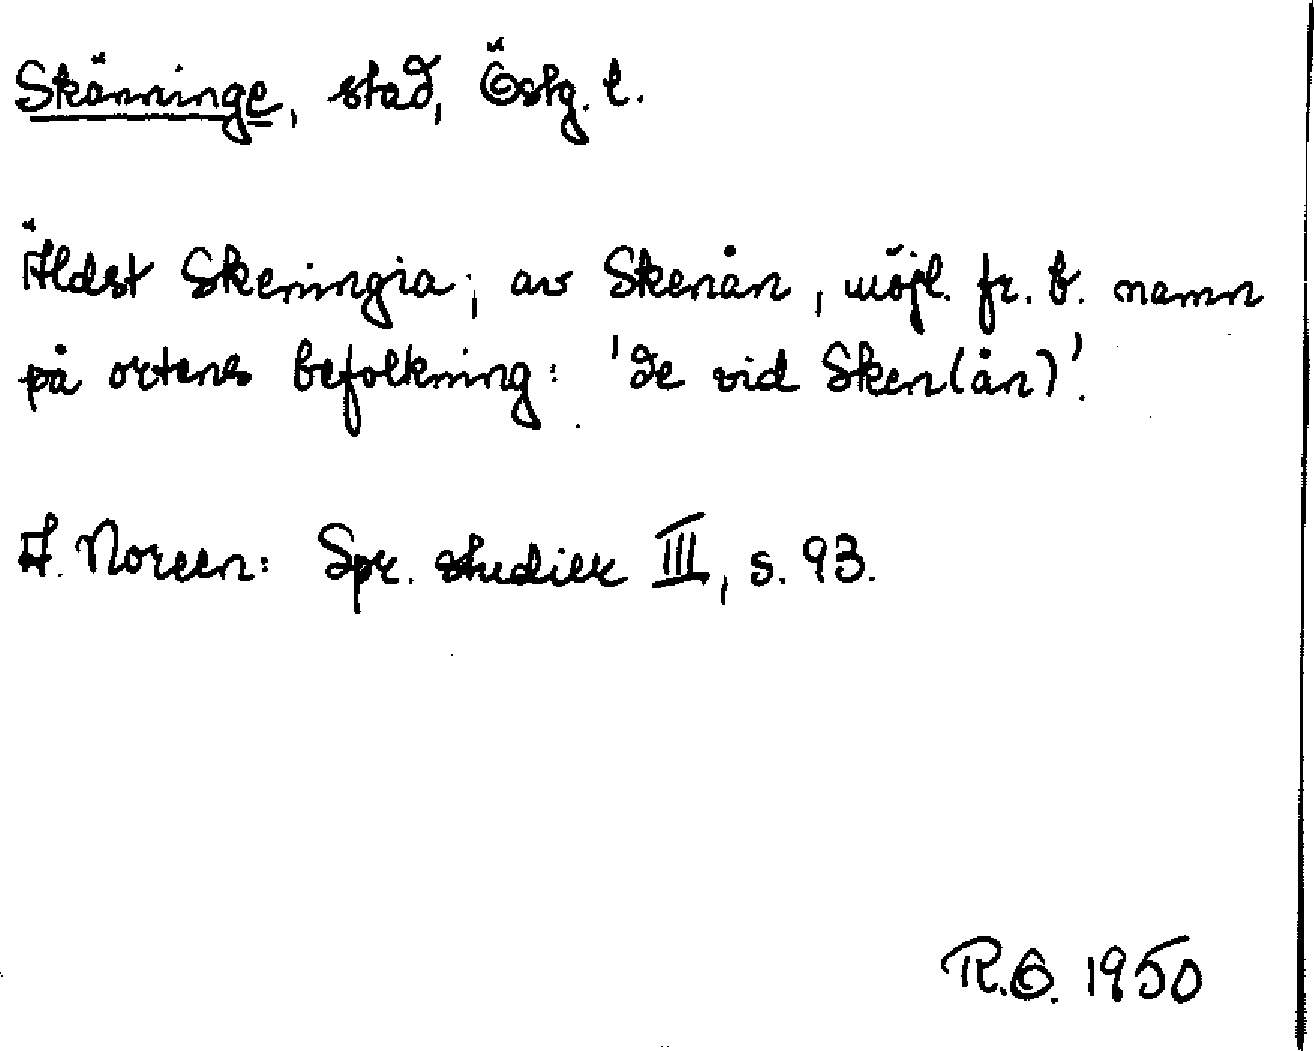 Skänninge, stad, Östg. l.
Äldst Skeningia; av Skenån, möjl. fr. b. namn
på ortens befolkning: 'de vid Sken(ån)'.
A. Noreen: Spr. studier III, s. 93.
R.Ö. 1950